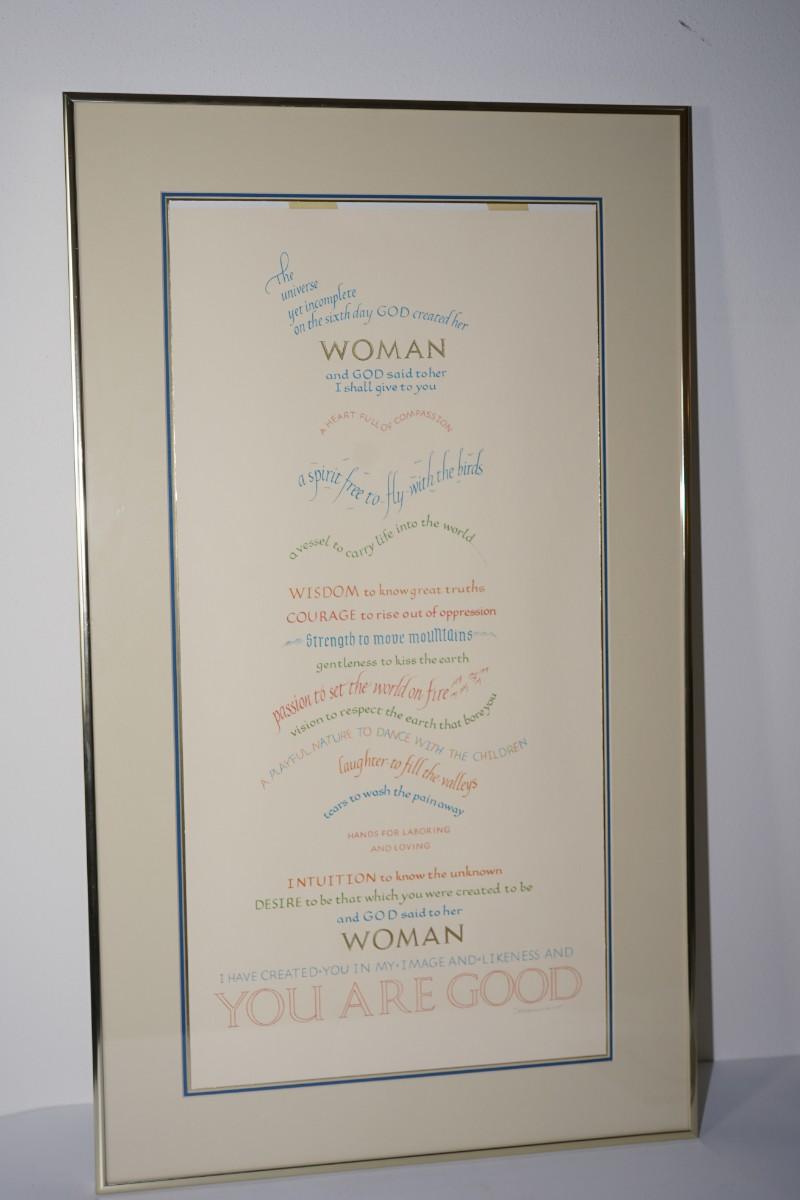 the
universe
yet incomplete
on the sixth day GOD created her
WOMAN
and GOD said to her
I shall give to you
A HEART FULL OF COMPASSION
a spirit free to fly with the birds
a vessel to carry life into the world
WISDOM to know great truths
COURAGE to rise out of oppression
Strength to move mountains
gentleness to kiss the earth
passion to set the world on fire
vision to respect the earth that bore you
A PLAYFUL NATURE TO DANCE WITH THE CHILDREN
laughter to fill the valleys
tears to wash the pain away
HANDS FOR LABORING
AND LOVING
INTUITION to know the unknown
DESIRE to be that which you were created to be
and GOD said to her
WOMAN
I HAVE CREATED•YOU IN MY•IMAGE AND•LIKENESS AND
YOU ARE GOOD